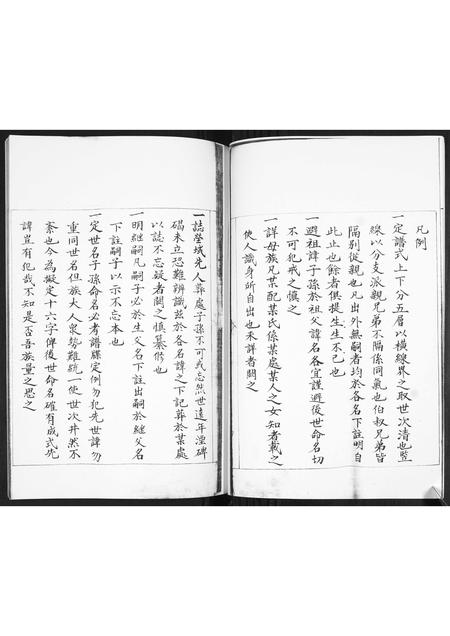 凡例
一定譜式上下分五層以橫線界之取世次清也豎
線以分支派親兄弟不隔係同氣也伯叔兄弟皆
隔別從親也凡出外無嗣者均於各名下註明自
此止也餘者俱提生生不已也
一避祖諱子孫於祖父諱名各宜謹避後世命名切
不可犯戒之慎之
一詳母族凡某配某氏係某處某人之女知者載之
使人識身所自出也未詳者闕之
一誌塋域先人葬處子孫不可或忘然世遠年湮碑
碣未立恐難辨識玆於各名諱之下記葬於某處
以誌不忘疑者闕之慎纂修也
一明繼嗣凡嗣子必於生父名下註出嗣於繼父名
下註嗣子以示不忘本也
一定世名子孫命名必考譜牒定例勿犯先世諱勿
重同世名但族大人衆勢難統一使世次井然不
紊也今為擬定十六字俾後世命名確有成式先
諱豈有犯哉不知是否吾族量之思之